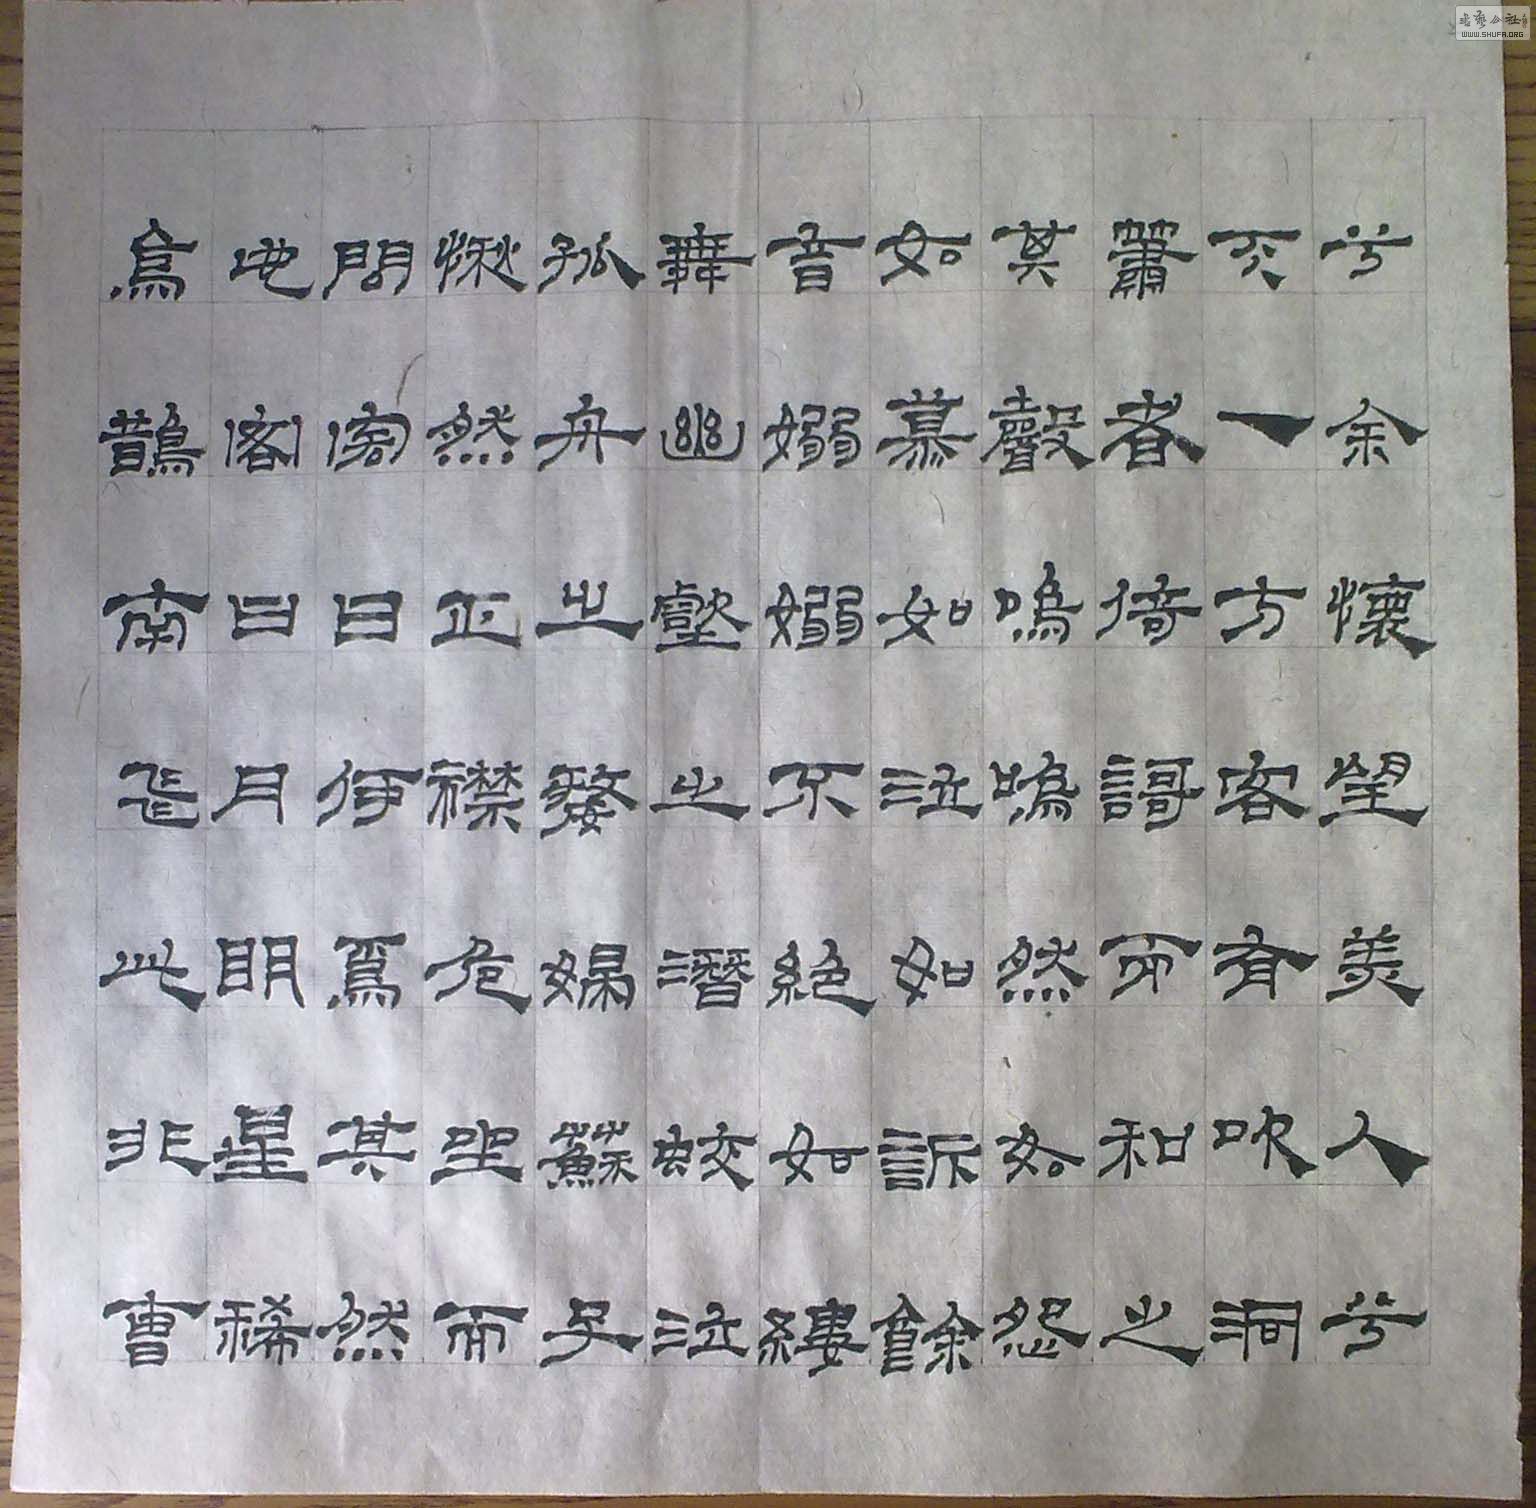 兮余懷望美人兮
天一方客有吹洞
簫者倚謌而和之
其聲嗚嗚然如怨
如慕如泣如訴餘
音嫋嫋不絕如縷
舞幽壑之潛蛟泣
孤舟之嫠婦蘇子
愀然正襟危坐而
問客曰何爲其然
也客曰月明星稀
烏鵲南飛此非曹
书艺公社
WWW.SHUFA.ORG